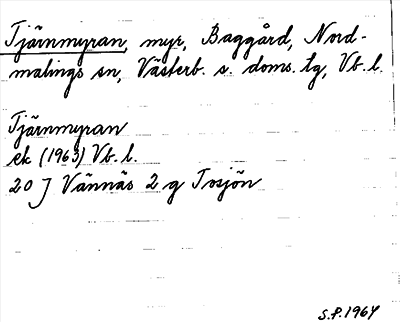 Tjärnmyran, myr, Baggård, Nord-
malings sn, Västerb. s. doms. tg, Vb. l.
Tjärnmyran
ek (1963) Vb. l.
20 J Vännäs 2 g Tosjön
S.P. 1964